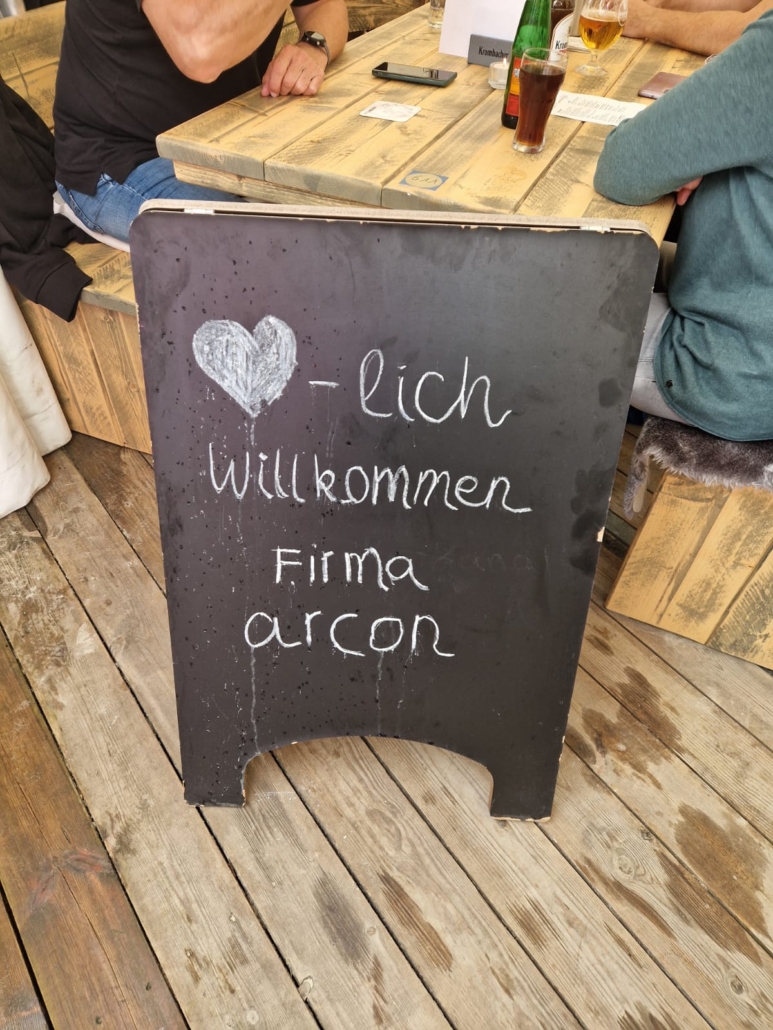 Krombacher
♥-lich
Willkommen
Firma
arcon